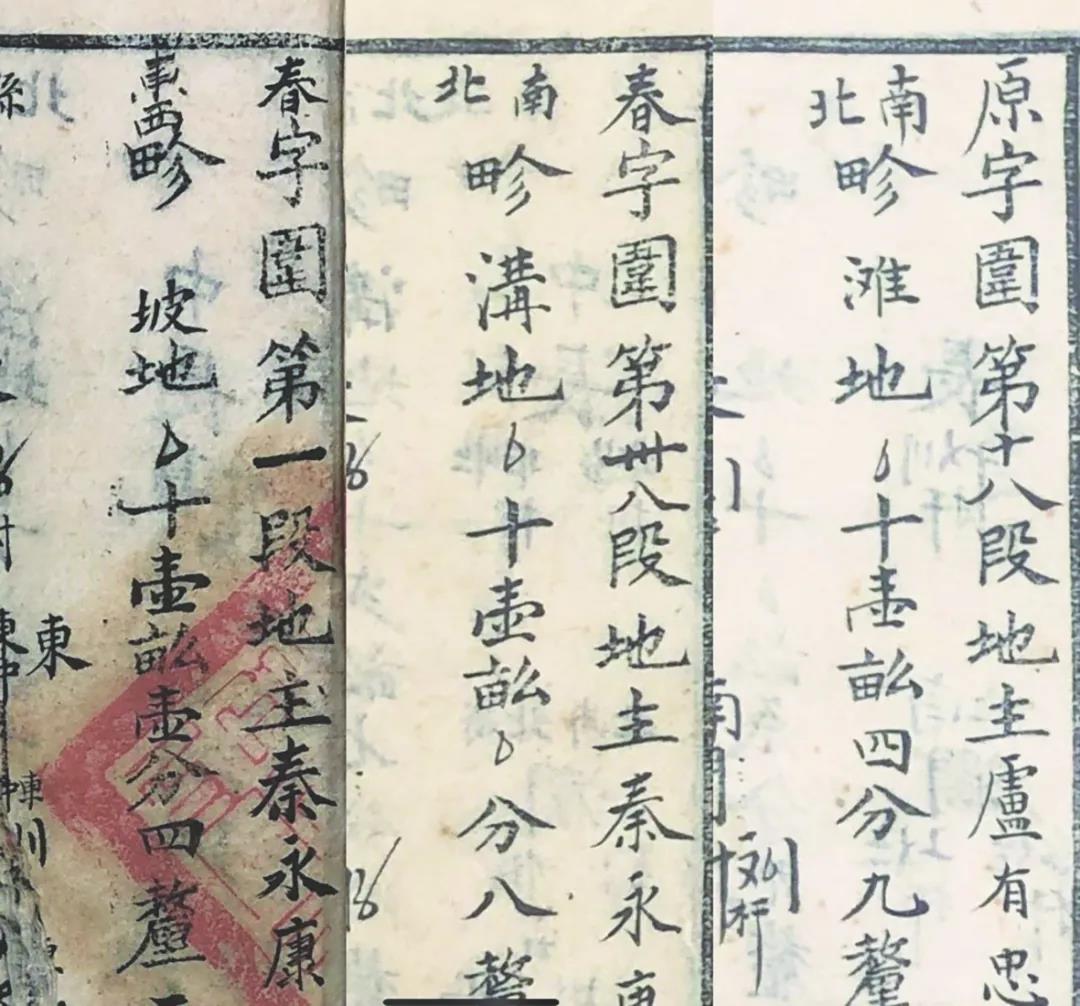 原字圍第十八段地主盧有忠
南北畛 滩地〇十壹畝四分九釐
春字圍第卅八段地主秦永康
南北畛 溝地〇十壹畝〇分八釐
春字圍第一段地主秦永康
東西畛 坡地〇十壹畝壹分四釐
東